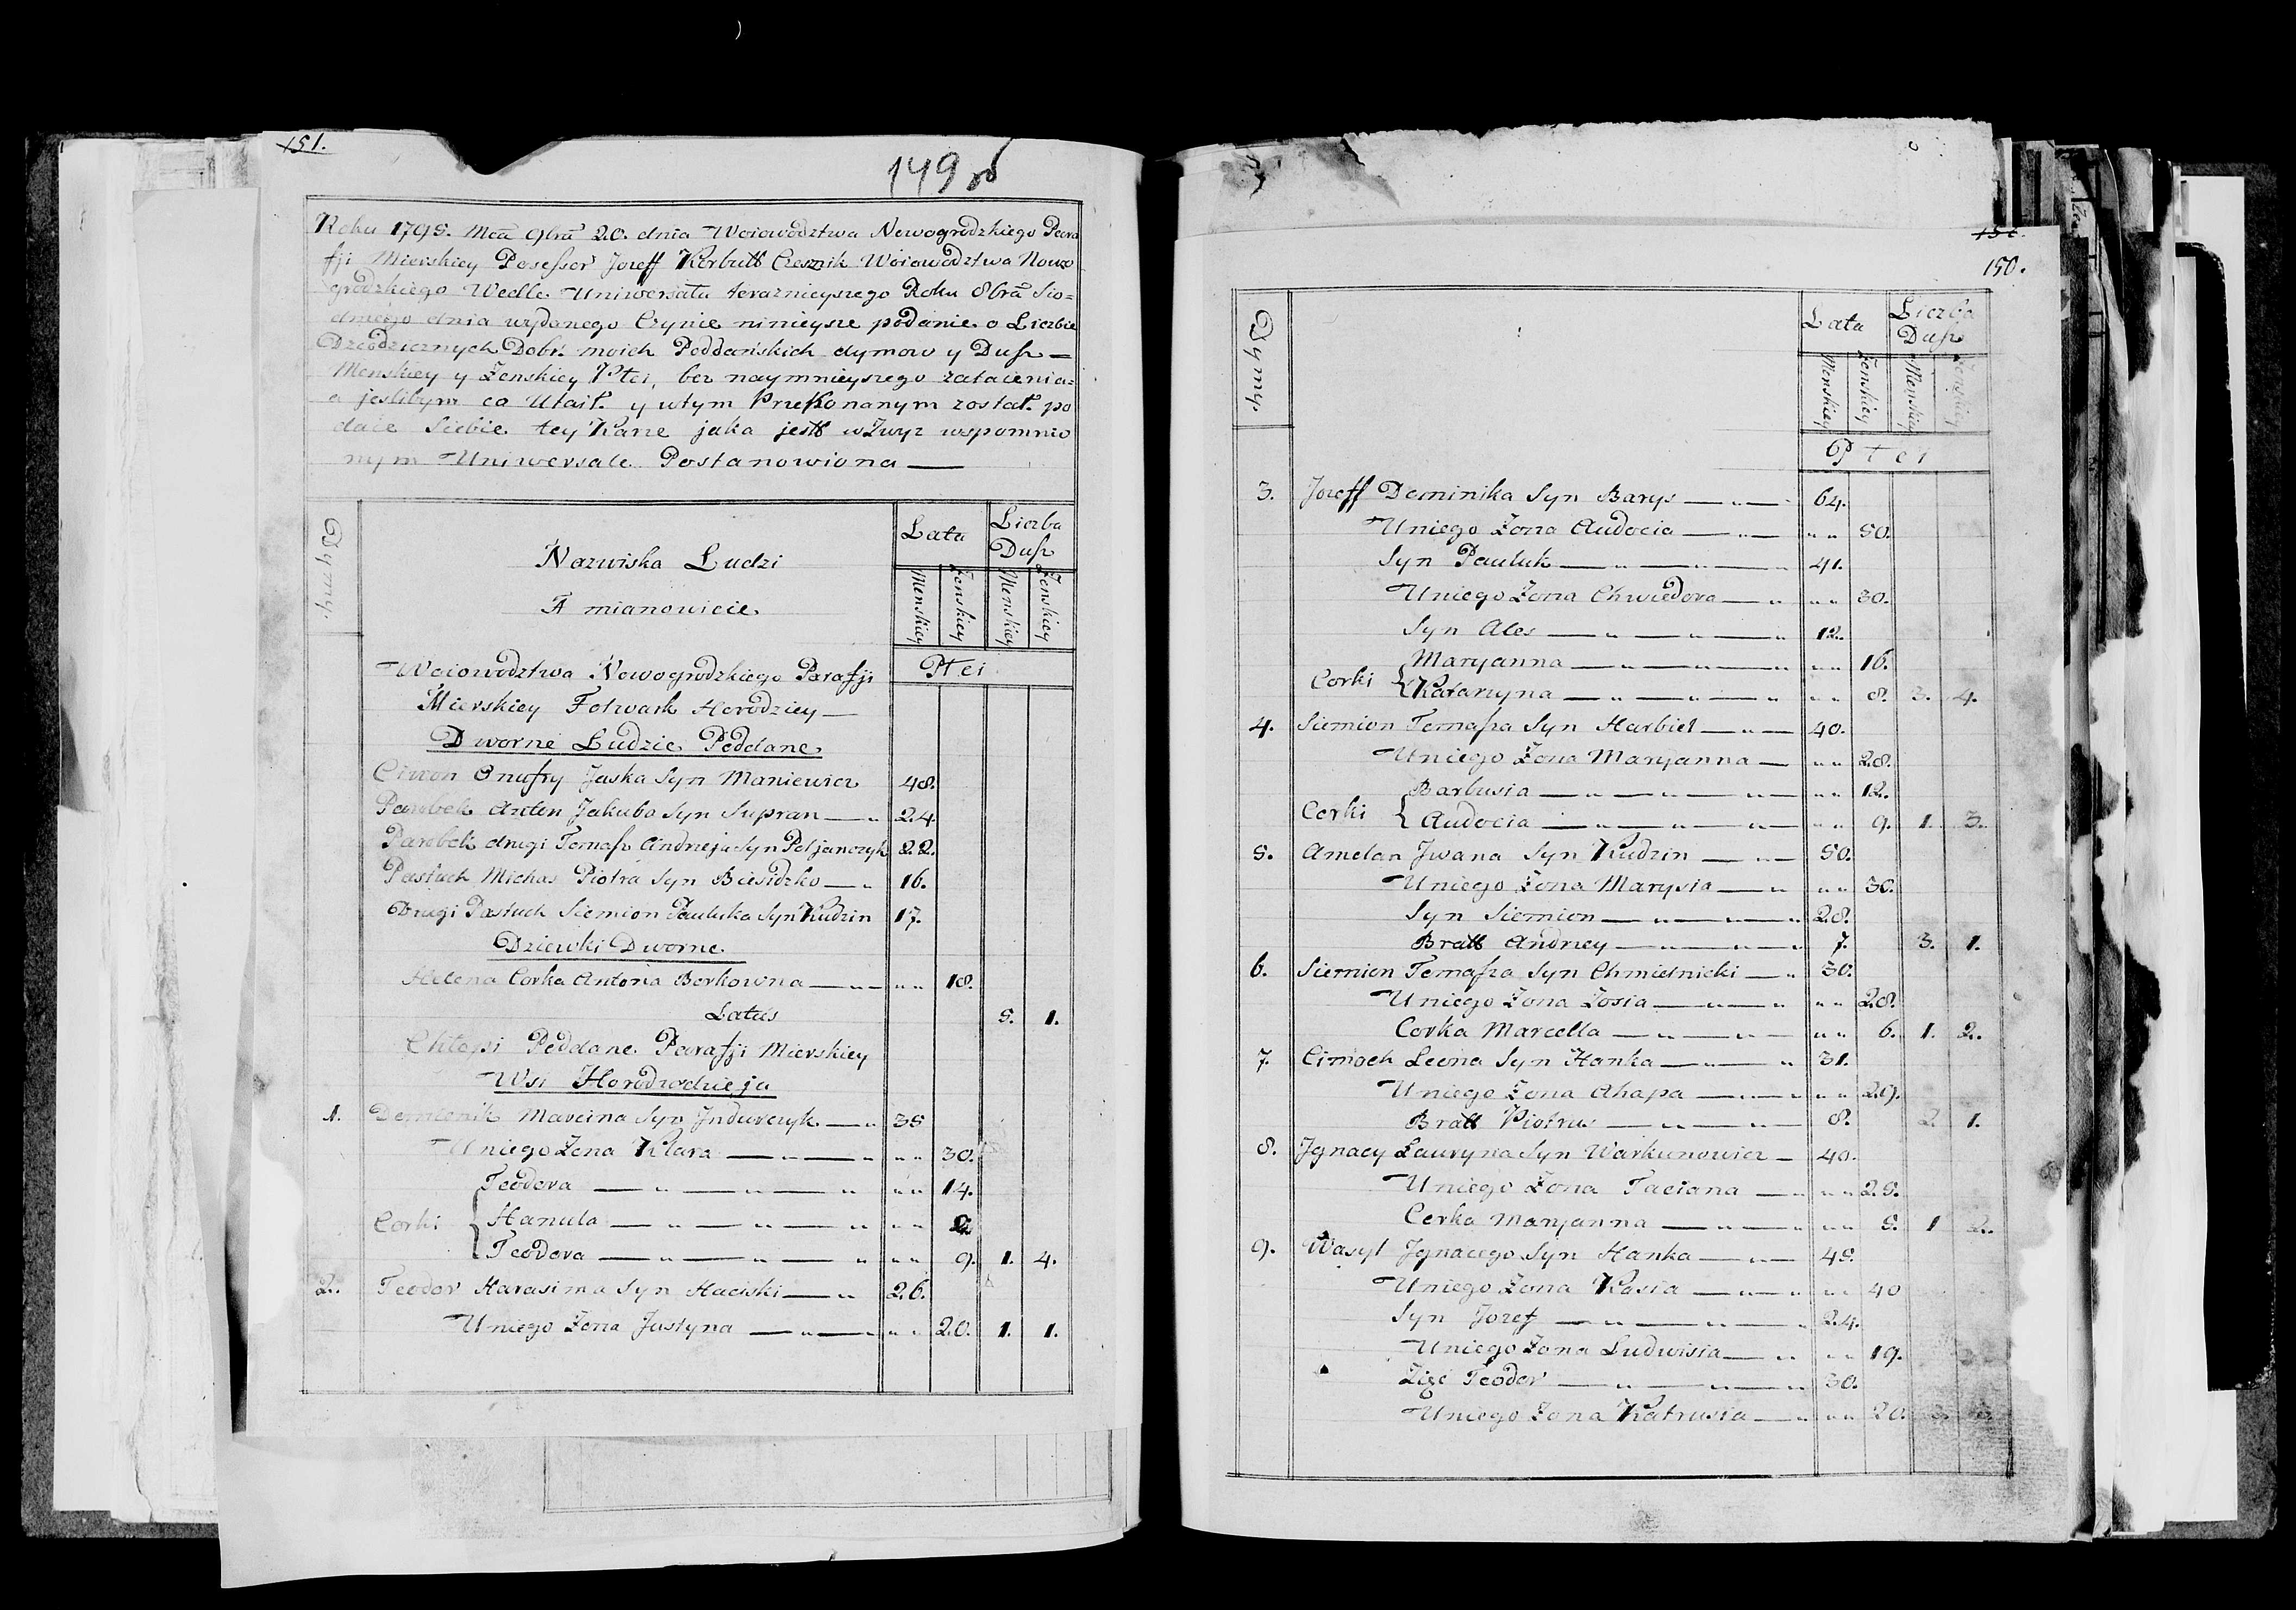 151.
149 об
Roku 1795. Mca 9bra 20. dnia Woiowodztwa Nowogrodzkiego Para
fji Mierskiey Posessor Jozeff Kierbutt Czesznik Woiowodztwa Nowo
grodzkiego Wedle Uniwersału teraznieyszego Roku 8bra Sio=
dmego dnia wydanego Czynie ninieysze podanie o Liczbie
Dziedzicznych Dobr moich Poddańskich dymow y Dusz —
Menskiey y Żenskiey Ptci, bez naymnieyszego zatacenia=
a jeslibym co Utaił y wtym Przekonanym został po
daie Siebie tey Karze jaka jestt wZwyz wspomnio
nym Uniwersale Postanowiona —
Dymy.
Nazwiska Ludzi
A mianowicie.
Lata
Liczba Dusz
Menskiey Żenskiey Menskiey Żenskiey
Ptci
Woiowodztwa Nowogrodzkiego Parafji
Mierskiey Folwark Horodziey —
Dworne Ludzie Poddane
Ciwon Onufry Jaska Syn Maniewicz 48.
Parobek Anton Jakuba Syn Supran — „ 24.
Parobek drugi Tomasz Andrieja Syn Poljanczyk 22.
Pastuch Michas Piotra Syn Biesidzko — „ 16.
Drugi Pastuch Siemion Pauluka Syn Kudzin 17.
Dziewki Dworne.
Helena Corka Antona Borkowna — „ — „ „ 18.
Latus 5. 1.
Chłopi Poddane Parafji Mierskiey
Wsi Horodzieja
1. Dominik Marcina Syn Jndurczyk — „ 35
Uniego Zona Klara — „ — „ — „ „ „ 30.
Teodora — „ — „ — „ „ „ 14.
Corki { Hanula — „ — „ — „ „ „
Teodora — „ — „ — „ „ „ 9. 1. 4.
2. Teodor Harasima Syn Haciski — „ 26.
Uniego Zona Justyna — „ — „ „ 20. 1. 1.
150.
Dymy.
Lata
Liczba Dusz
Menskiey Żenskiey Menskiey Żenskiey
Ptci
3. Jozeff Dominika Syn Barys — „ — 64.
Uniego Zona Audocia — „ — „ „ 50.
Syn Pauluk — „ — „ — „ 41.
Uniego Zona Chwiedora — „ „ „ 30.
Syn Ales — „ — „ — „ 12.
Maryanna — „ — „ — „ „ „ 16.
Corki { Katarzyna — „ — „ — „ „ „ 8. 3. 4.
4. Siemion Tomasza Syn Harbiel — „ — 40.
Uniego Zona Maryanna — „ „ 28.
Barbusia — „ — „ — „ „ 12.
Corki { Audocia — „ — „ — „ — „ „ 9. 1. 3.
5. Amelan Jwana Syn Kudzin — „ — 50.
Uniego Zona Marysia — „ — „ „ „ 30.
Syn Siemion — „ — „ — „ 28.
Bratt Andriey — „ — „ — „ 7. 3. 1.
6. Siemion Tomasza Syn Chmielnicki — „ 30.
Uniego Zona Zosia — „ — „ „ „ 28.
Corka Marcella — „ — „ — „ „ 6. 1. 2.
7. Cimoch Leona Syn Hanka — „ — „ 31.
Uniego Zona Ahapa — „ — „ „ „ 29.
Bratt Piotrus — „ — „ — 8. 2. 1.
8. Jgnacy Lauryna Syn Warkunowicz — 40.
Uniego Zona Taciana — „ „ „ 25.
Corka Maryanna — „ — „ „ „ 5. 1 2.
9. Wasyl Jgnacego Syn Hanka — „ — 45.
Uniego Zona Kasia — „ — „ „ „ 40
Syn Jozef — „ — „ — „ 24.
Uniego Zona Ludwisia — „ „ „ 19.
Zięć Teodor — „ — „ — „ 30.
Uniego Zona Katrusia — „ „ „ 20.